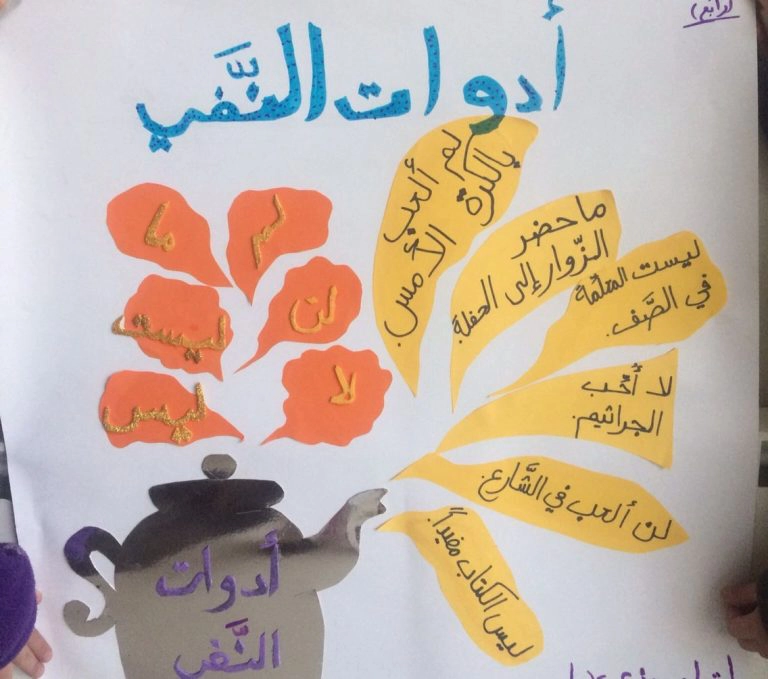 أدوات النَّفي
ما
لم
لن
ليست
لا
ليس
لم ألعب
بالكرة
الأمس.
ما حضر
الزّوار إلى الحفلة.
ليست المعلّمة
في الصَّف.
لا أُحِّب
الجراثيم.
لن ألعب في الشَّارع.
ليس الكتاب مفيداً.
أدوات
النَّفي